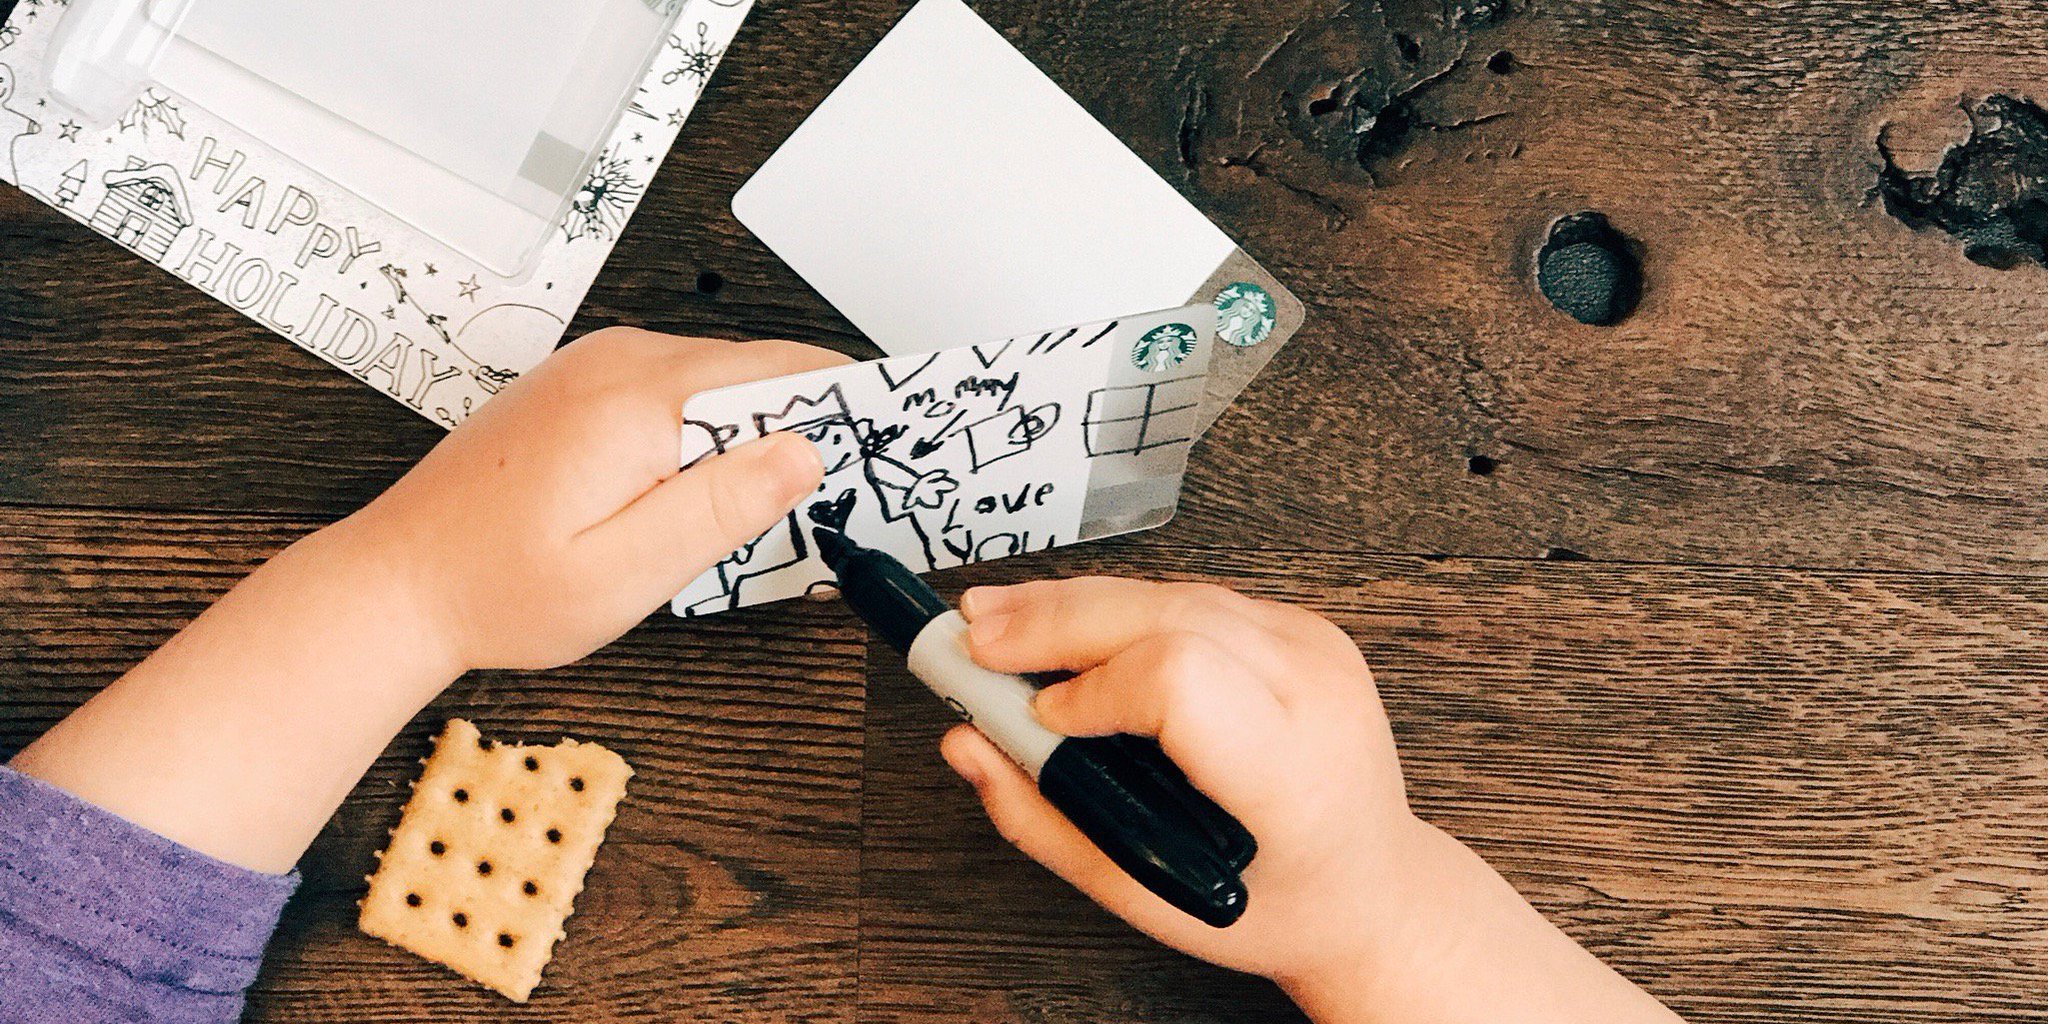 HAPPY
HOLIDAY
mommy
Love
YOU